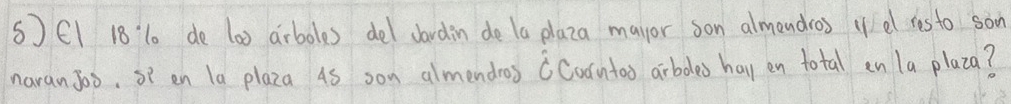 5) El 18% de los árboles del Jardin de la plaza mayor son almendros y el resto son
naranjos. Si en la plaza 45 son almendros ¿Cuántos árboles hay en total en la plaza?